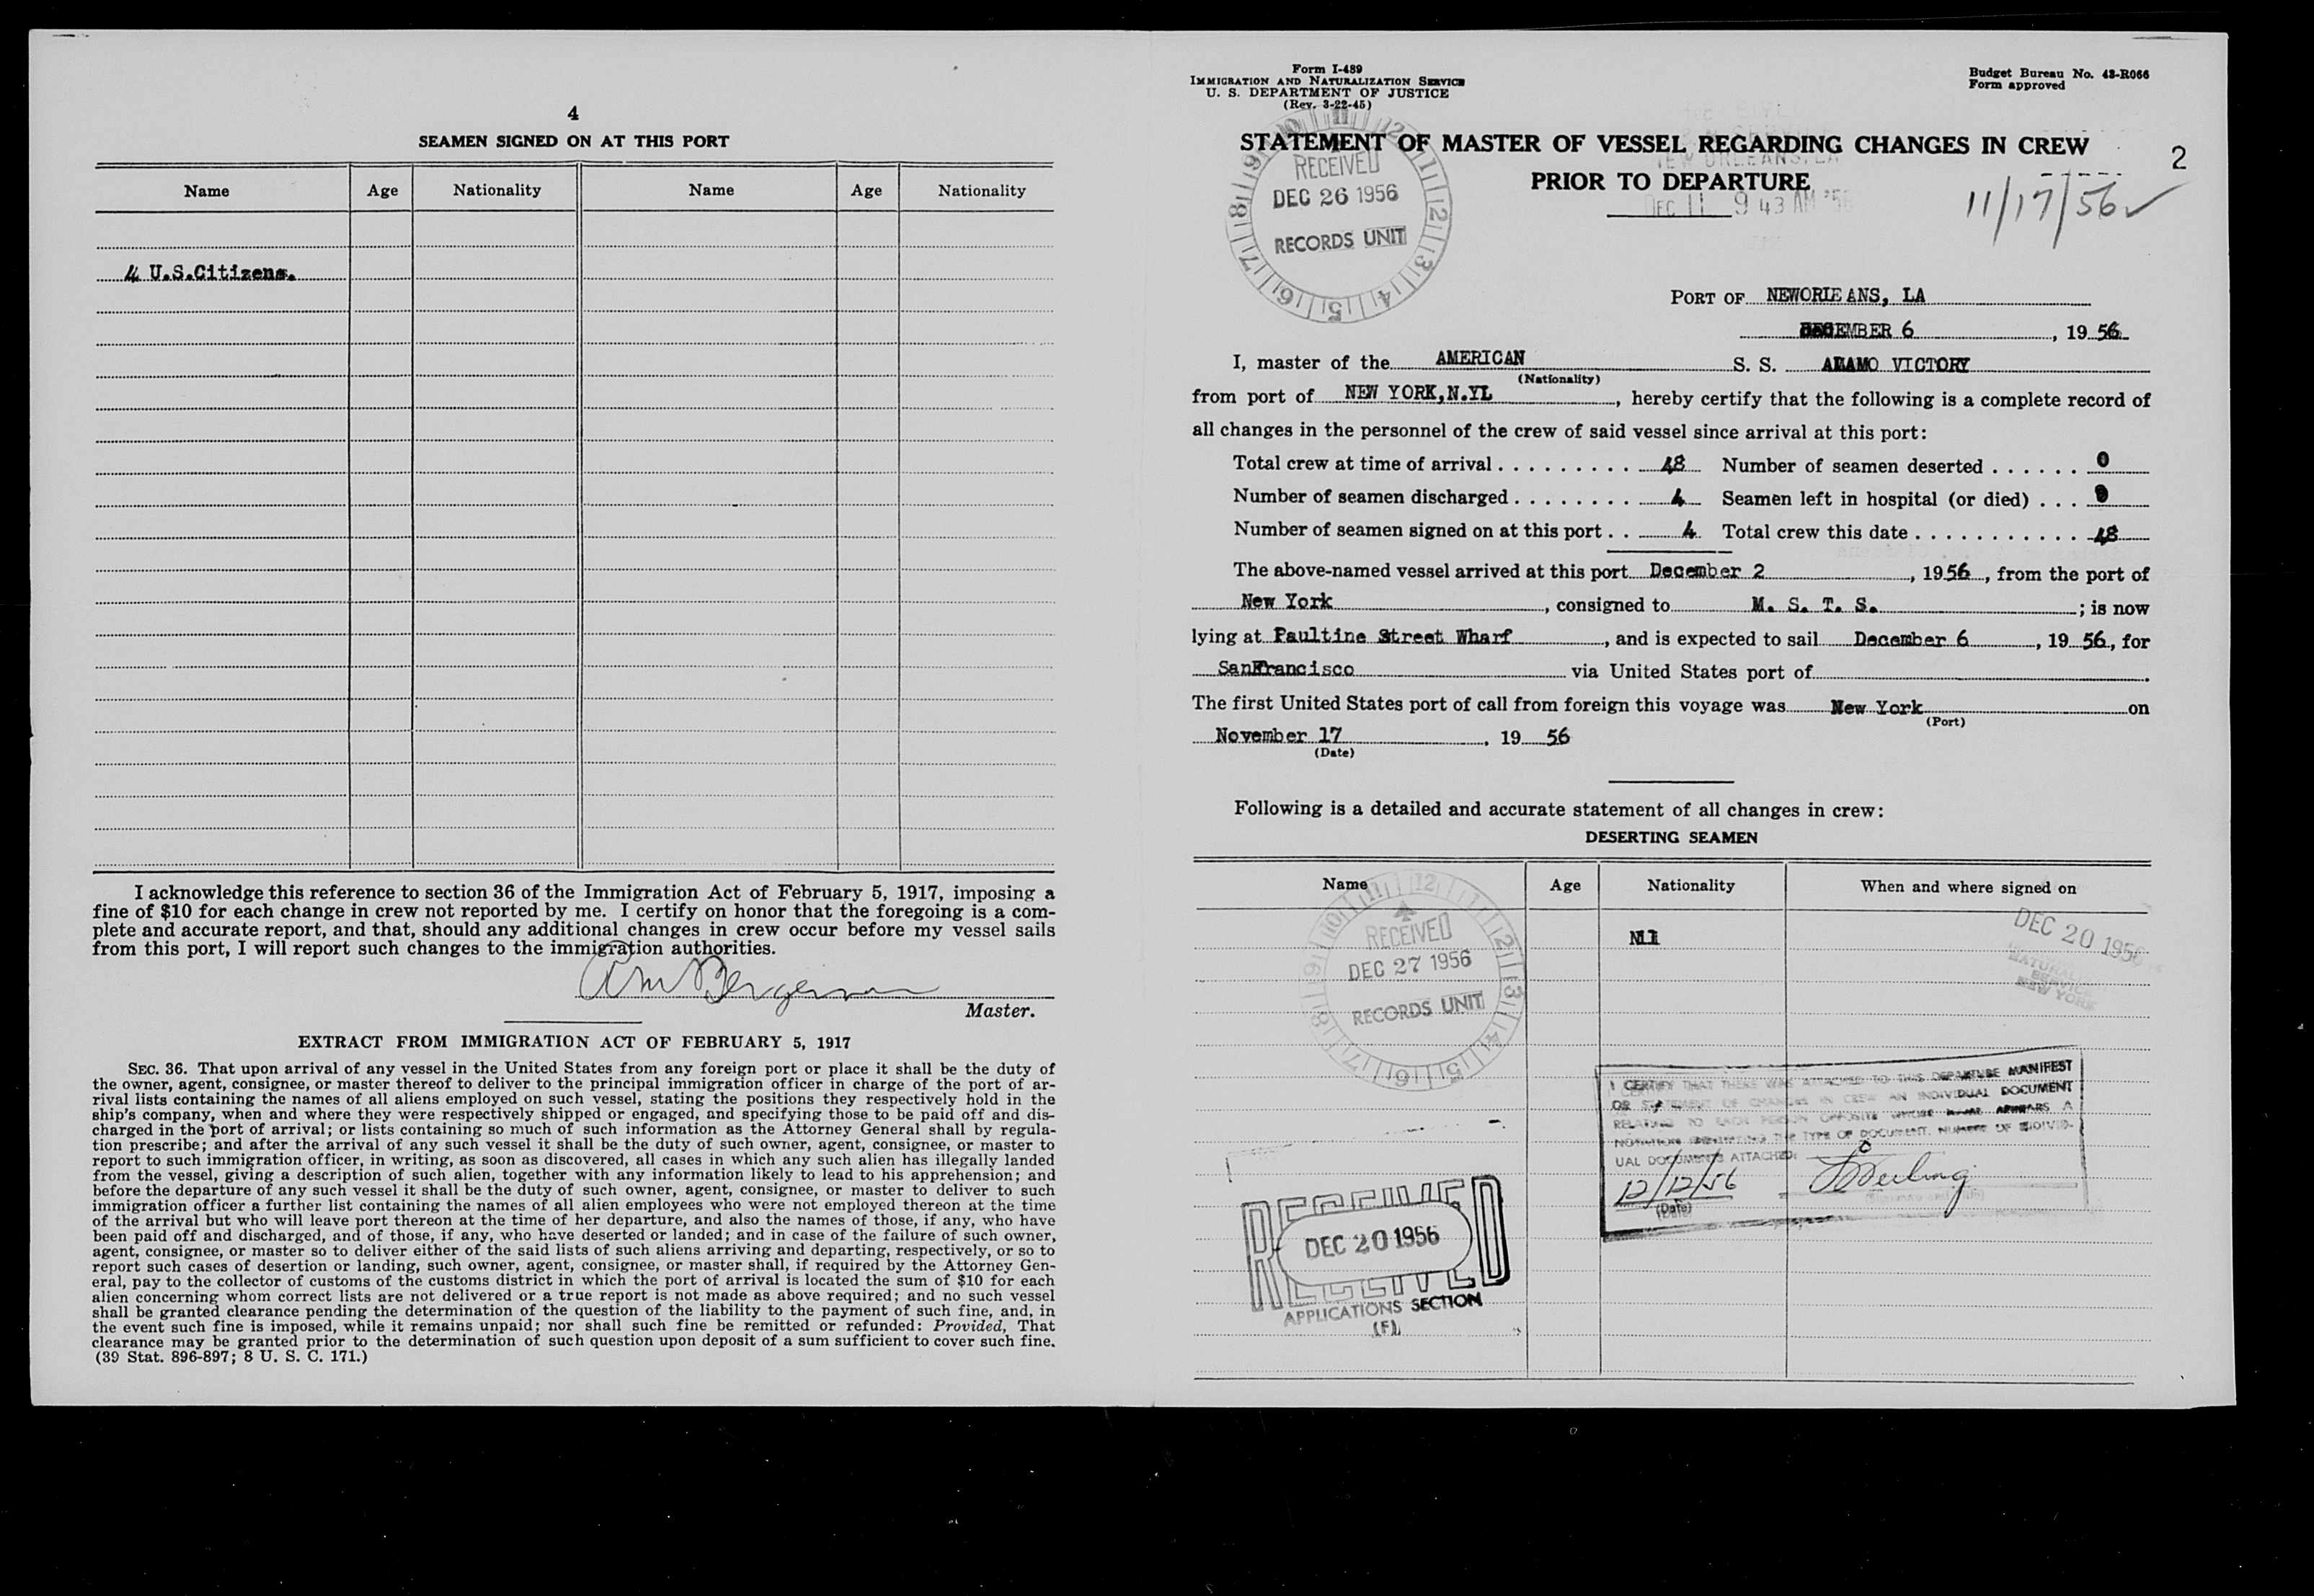 4
SEAMEN SIGNED ON AT THIS PORT
Name Age Nationality Name Age Nationality
4 U.S.Citizens.
I acknowledge this reference to section 36 of the Immigration Act of February 5, 1917, imposing a
fine of $10 for each change in crew not reported by me. I certify on honor that the foregoing is a com-
plete and accurate report, and that, should any additional changes in crew occur before my vessel sails
from this port, I will report such changes to the immigration authorities.
Master.
EXTRACT FROM IMMIGRATION ACT OF FEBRUARY 5, 1917
SEC. 36. That upon arrival of any vessel in the United States from any foreign port or place it shall be the duty of
the owner, agent, consignee, or master thereof to deliver to the principal immigration officer in charge of the port of ar-
rival lists containing the names of all aliens employed on such vessel, stating the positions they respectively hold in the
ship's company, when and where they were respectively shipped or engaged, and specifying those to be paid off and dis-
charged in the port of arrival; or lists containing so much of such information as the Attorney General shall by regula-
tion prescribe; and after the arrival of any such vessel it shall be the duty of such owner, agent, consignee, or master to
report to such immigration officer, in writing, as soon as discovered, all cases in which any such alien has illegally landed
from the vessel, giving a description of such alien, together with any information likely to lead to his apprehension; and
before the departure of any such vessel it shall be the duty of such owner, agent, consignee, or master to deliver to such
immigration officer a further list containing the names of all alien employees who were not employed thereon at the time
of the arrival but who will leave port thereon at the time of her departure, and also the names of those, if any, who have
been paid off and discharged, and of those, if any, who have deserted or landed; and in case of the failure of such owner,
agent, consignee, or master so to deliver either of the said lists of such aliens arriving and departing, respectively, or so to
report such cases of desertion or landing, such owner, agent, consignee, or master shall, if required by the Attorney Gen-
eral, pay to the collector of customs of the customs district in which the port of arrival is located the sum of $10 for each
alien concerning whom correct lists are not delivered or a true report is not made as above required; and no such vessel
shall be granted clearance pending the determination of the question of the liability to the payment of such fine, and, in
the event such fine is imposed, while it remains unpaid; nor shall such fine be remitted or refunded: Provided, That
clearance may be granted prior to the determination of such question upon deposit of a sum sufficient to cover such fine.
(39 Stat. 896-897; 8 U. S. C. 171.)
Form I-489
IMMIGRATION AND NATURALIZATION SERVICE
U. S. DEPARTMENT OF JUSTICE
(Rev. 3-22-45)
Budget Bureau No. 43-R066
Form approved
STATEMENT OF MASTER OF VESSEL REGARDING CHANGES IN CREW
PRIOR TO DEPARTURE
2
11/17/56 ✓
NEW ORLEANS, LA
DEC 11 9 43 AM '56
RECEIVED
DEC 26 1956
RECORDS UNIT
PORT OF NEWORLEANS, LA
DECEMBER 6, 19 56
I, master of the AMERICAN S. S. ADAMO VICTORY
(Nationality)
from port of NEW YORK,N.YL, hereby certify that the following is a complete record of
all changes in the personnel of the crew of said vessel since arrival at this port:
Total crew at time of arrival . . . . . . . . . 48 Number of seamen deserted . . . . . . 0
Number of seamen discharged . . . . . . . . 4 Seamen left in hospital (or died) . . . 0
Number of seamen signed on at this port . . 4 Total crew this date . . . . . . . . . . . . 48
The above-named vessel arrived at this port December 2, 1956, from the port of
New York, consigned to M. S. T. S.; is now
lying at Paultine Street Wharf, and is expected to sail December 6, 19 56, for
SanFrancisco via United States port of
The first United States port of call from foreign this voyage was New York on
(Port)
November 17, 19 56
(Date)
Following is a detailed and accurate statement of all changes in crew:
DESERTING SEAMEN
Name Age Nationality When and where signed on
Nil
RECEIVED
DEC 27 1956
RECORDS UNIT
DEC 20 1956
SERVICE
NEW YORK
I CERTIFY THAT THERE WAS ATTACHED TO THIS DEPARTURE MANIFEST
OR STATEMENT OF CHANGES IN CREW AN INDIVIDUAL DOCUMENT
RELATING TO EACH PERSON OPPOSITE WHOSE NAME APPEARS A
NOTATION THE TYPE OF DOCUMENT. NUMBER OF INDIVID-
UAL DOCUMENTS ATTACHED: 0
12/12/56
(Date)
RECEIVED
DEC 20 1956
APPLICATIONS SECTION
(F)